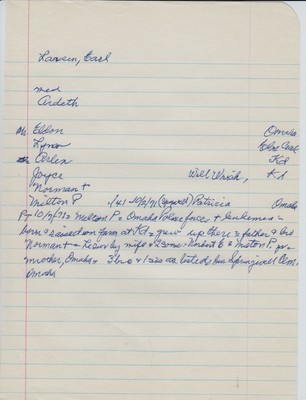 Larsen, Earl
med
Ardeth
Eldon Omaha
Lynn Elm
Arlen Kd
Joyce Will Ulrich, Kd
Norman +
Milton P. /41 10/6/71 (age) Patricia Omaha
P- 10/7/71= Milton P= Omaha Police force + leukemia=
born + raised on farm at Kd= grew up there= father + bro
Norman += by wife + 2 sons: Robert E + Milton P. Jr=
mother, Omaha= 3 bro + 1 sis as listed; bur Springwell Cem.
Omaha